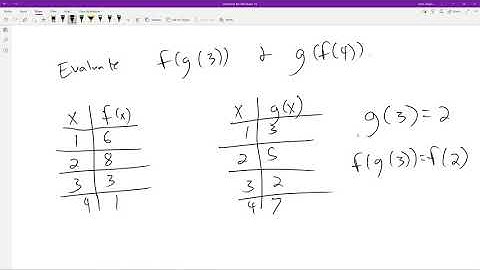 Evaluate f(g(3)) & g(f(4)).
x f(x)
1 6
2 8
3 3
4 1
x g(x)
1 3
2 5
3 2
4 7
g(3)=2
f(g(3))=f(2)